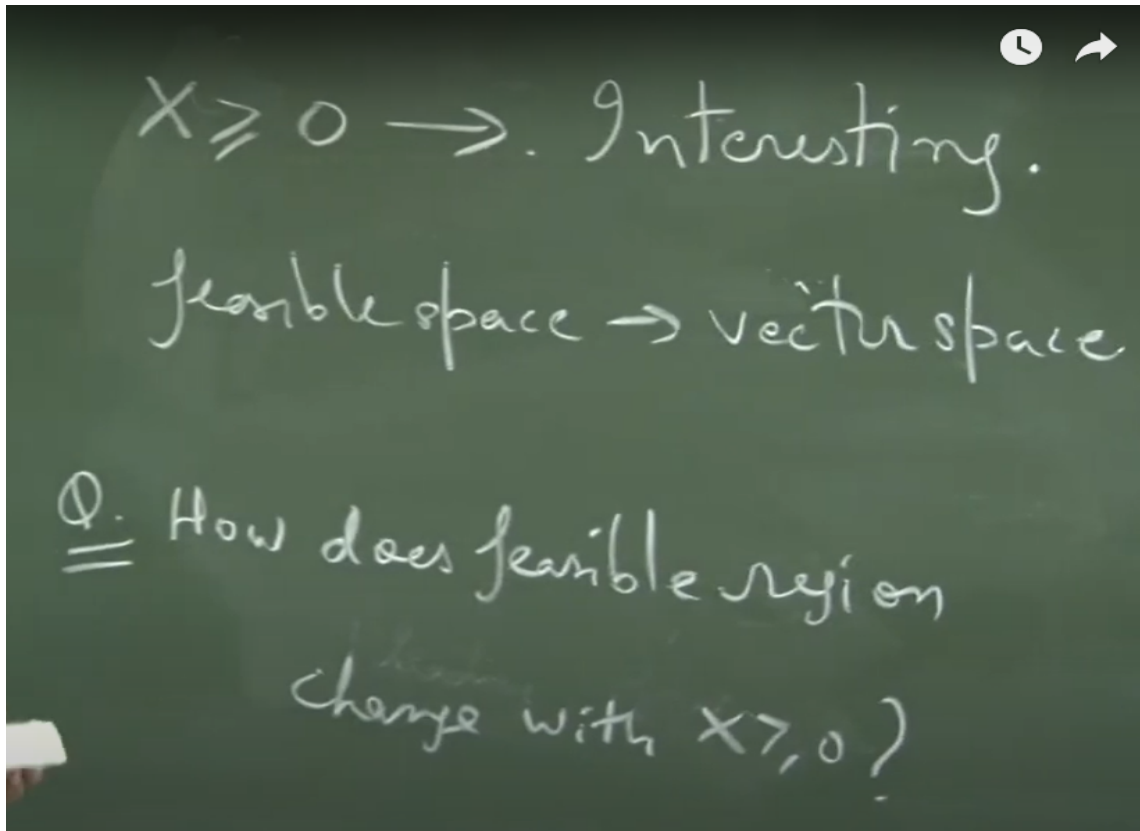 X ≥ 0 → . Interesting.
feasible space → vector space
Q. How does feasible region
change with X ≥ 0 ?